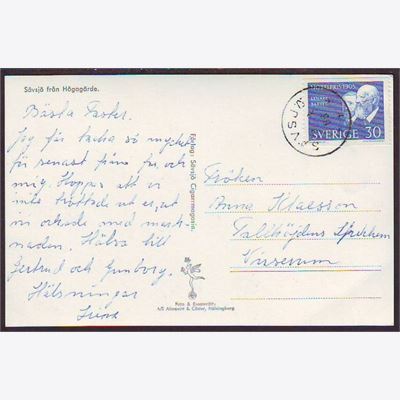 Sävsjö från Högagärde.
Bästa Faster.
Jag får tacka så mycket
för senast från
mig. Hoppas att vi
inte tröttade ut er, att
ni orkade med mark-
naden. Hälsa till
Gertrud och Gunborg.
Hälsningar
Förlag: Sävsjö Cigarrmagasin.
Foto & Ensamrätt:
A/B Almqvist & Cöster, Hälsingborg
NOBELPRIS 1905
SVERIGE 30
SÄVSJÖ
Fröken
Anna Klaesson
Tallhöjdens
Virserum